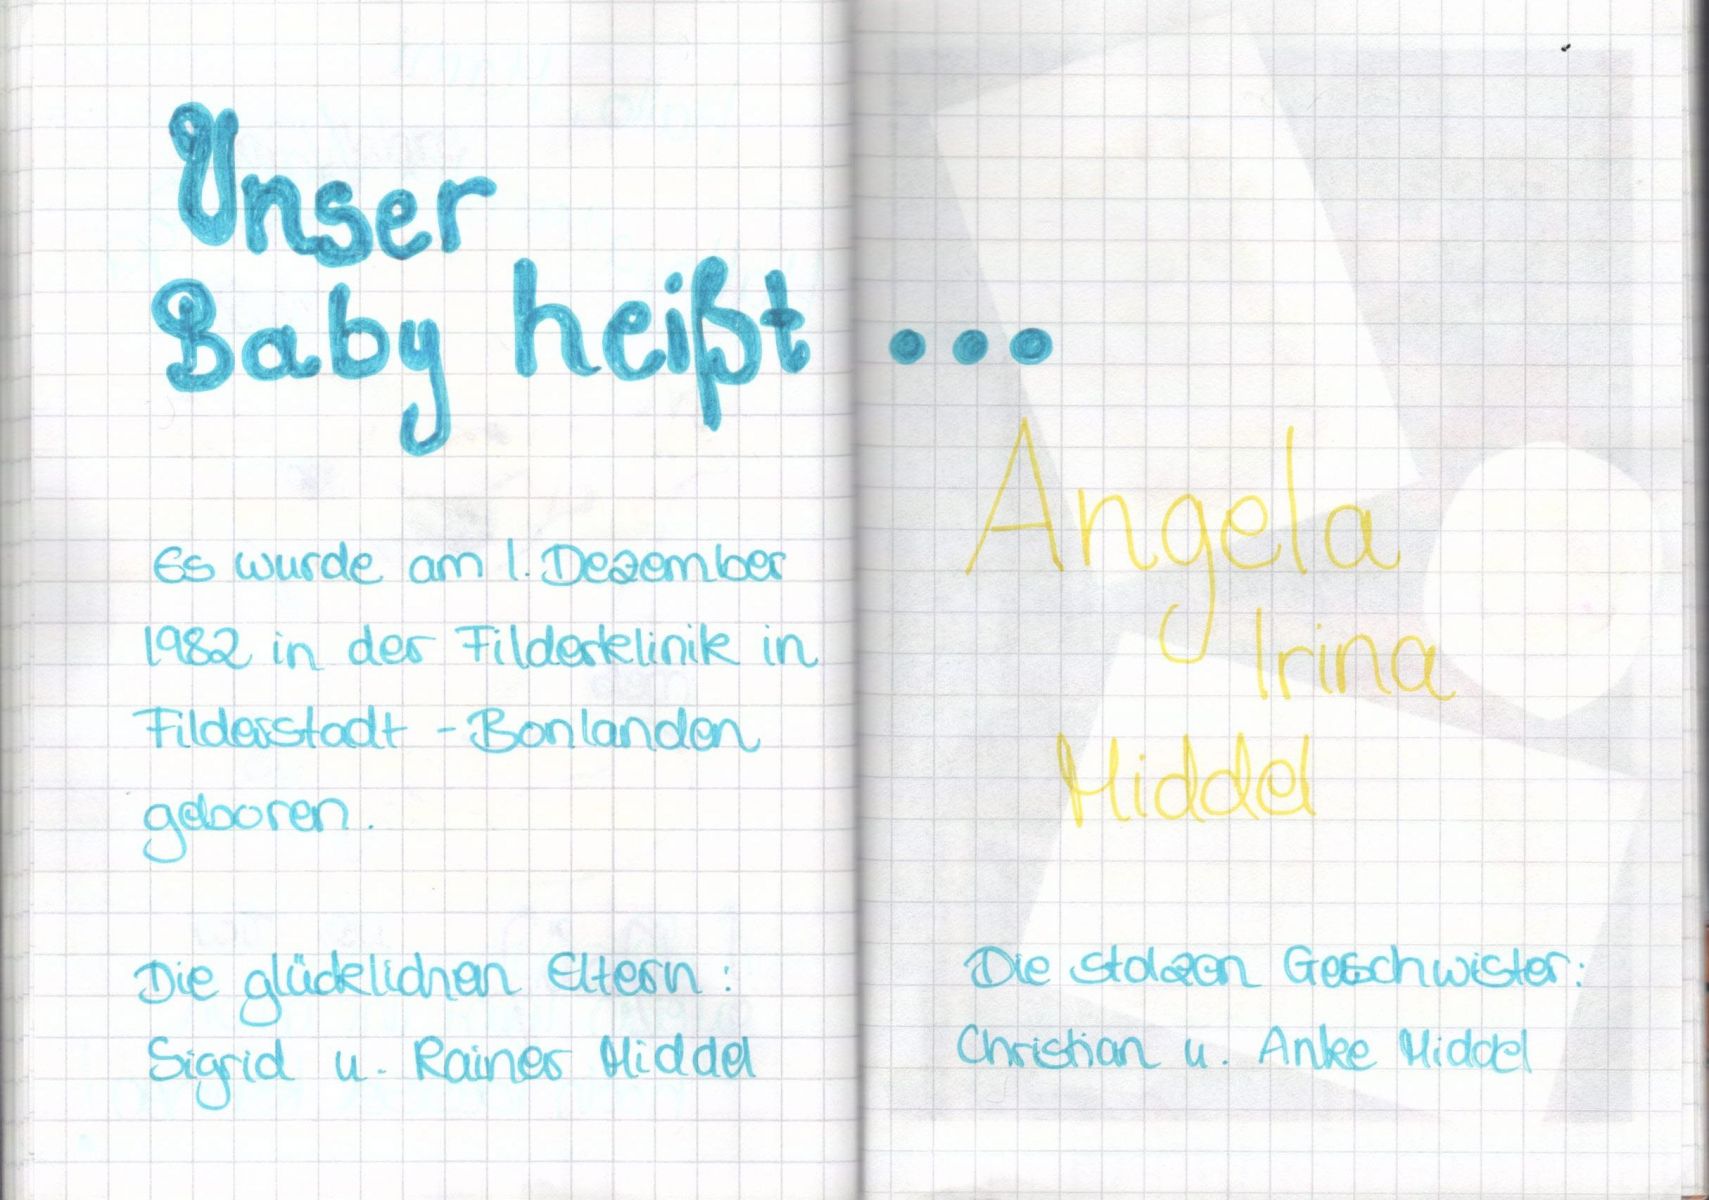 Unser
Baby heißt
Es wurde am 1. Dezember
1982 in der Filderklinik in
Filderstadt - Bonlanden
geboren.
Die glücklichen Eltern:
Sigrid u. Rainer Middel
...
Angela
Irina
Middel
Die stolzen Geschwister:
Christian u. Anke Middel